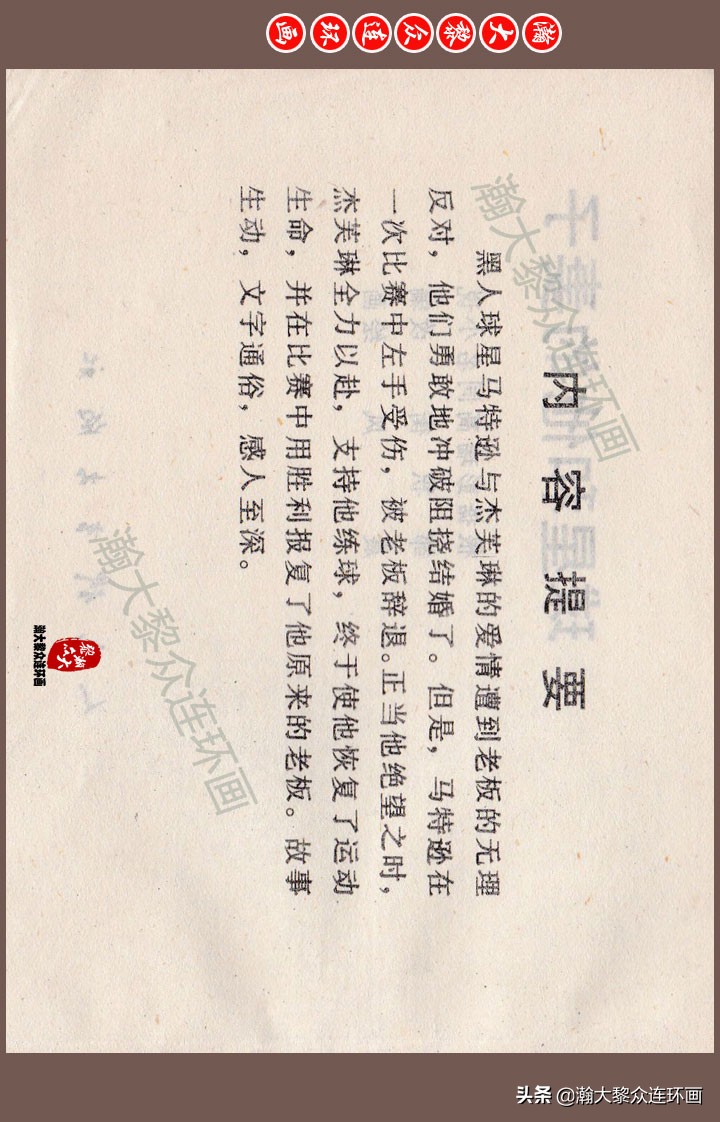 瀚大黎众连环画
内容提要
黑人球星马特逊与杰芙琳的爱情遭到老板的无理
反对，他们勇敢地冲破阻挠结婚了。但是，马特逊在
一次比赛中左手受伤，被老板辞退。正当他绝望之时，
杰芙琳全力以赴，支持他练球，终于使他恢复了运动
生命，并在比赛中用胜利报复了他原来的老板。故事
生动，文字通俗，感人至深。
瀚大黎众连环画
瀚大黎众连环画
瀚大黎众
瀚大黎众连环画
头条 @瀚大黎众连环画